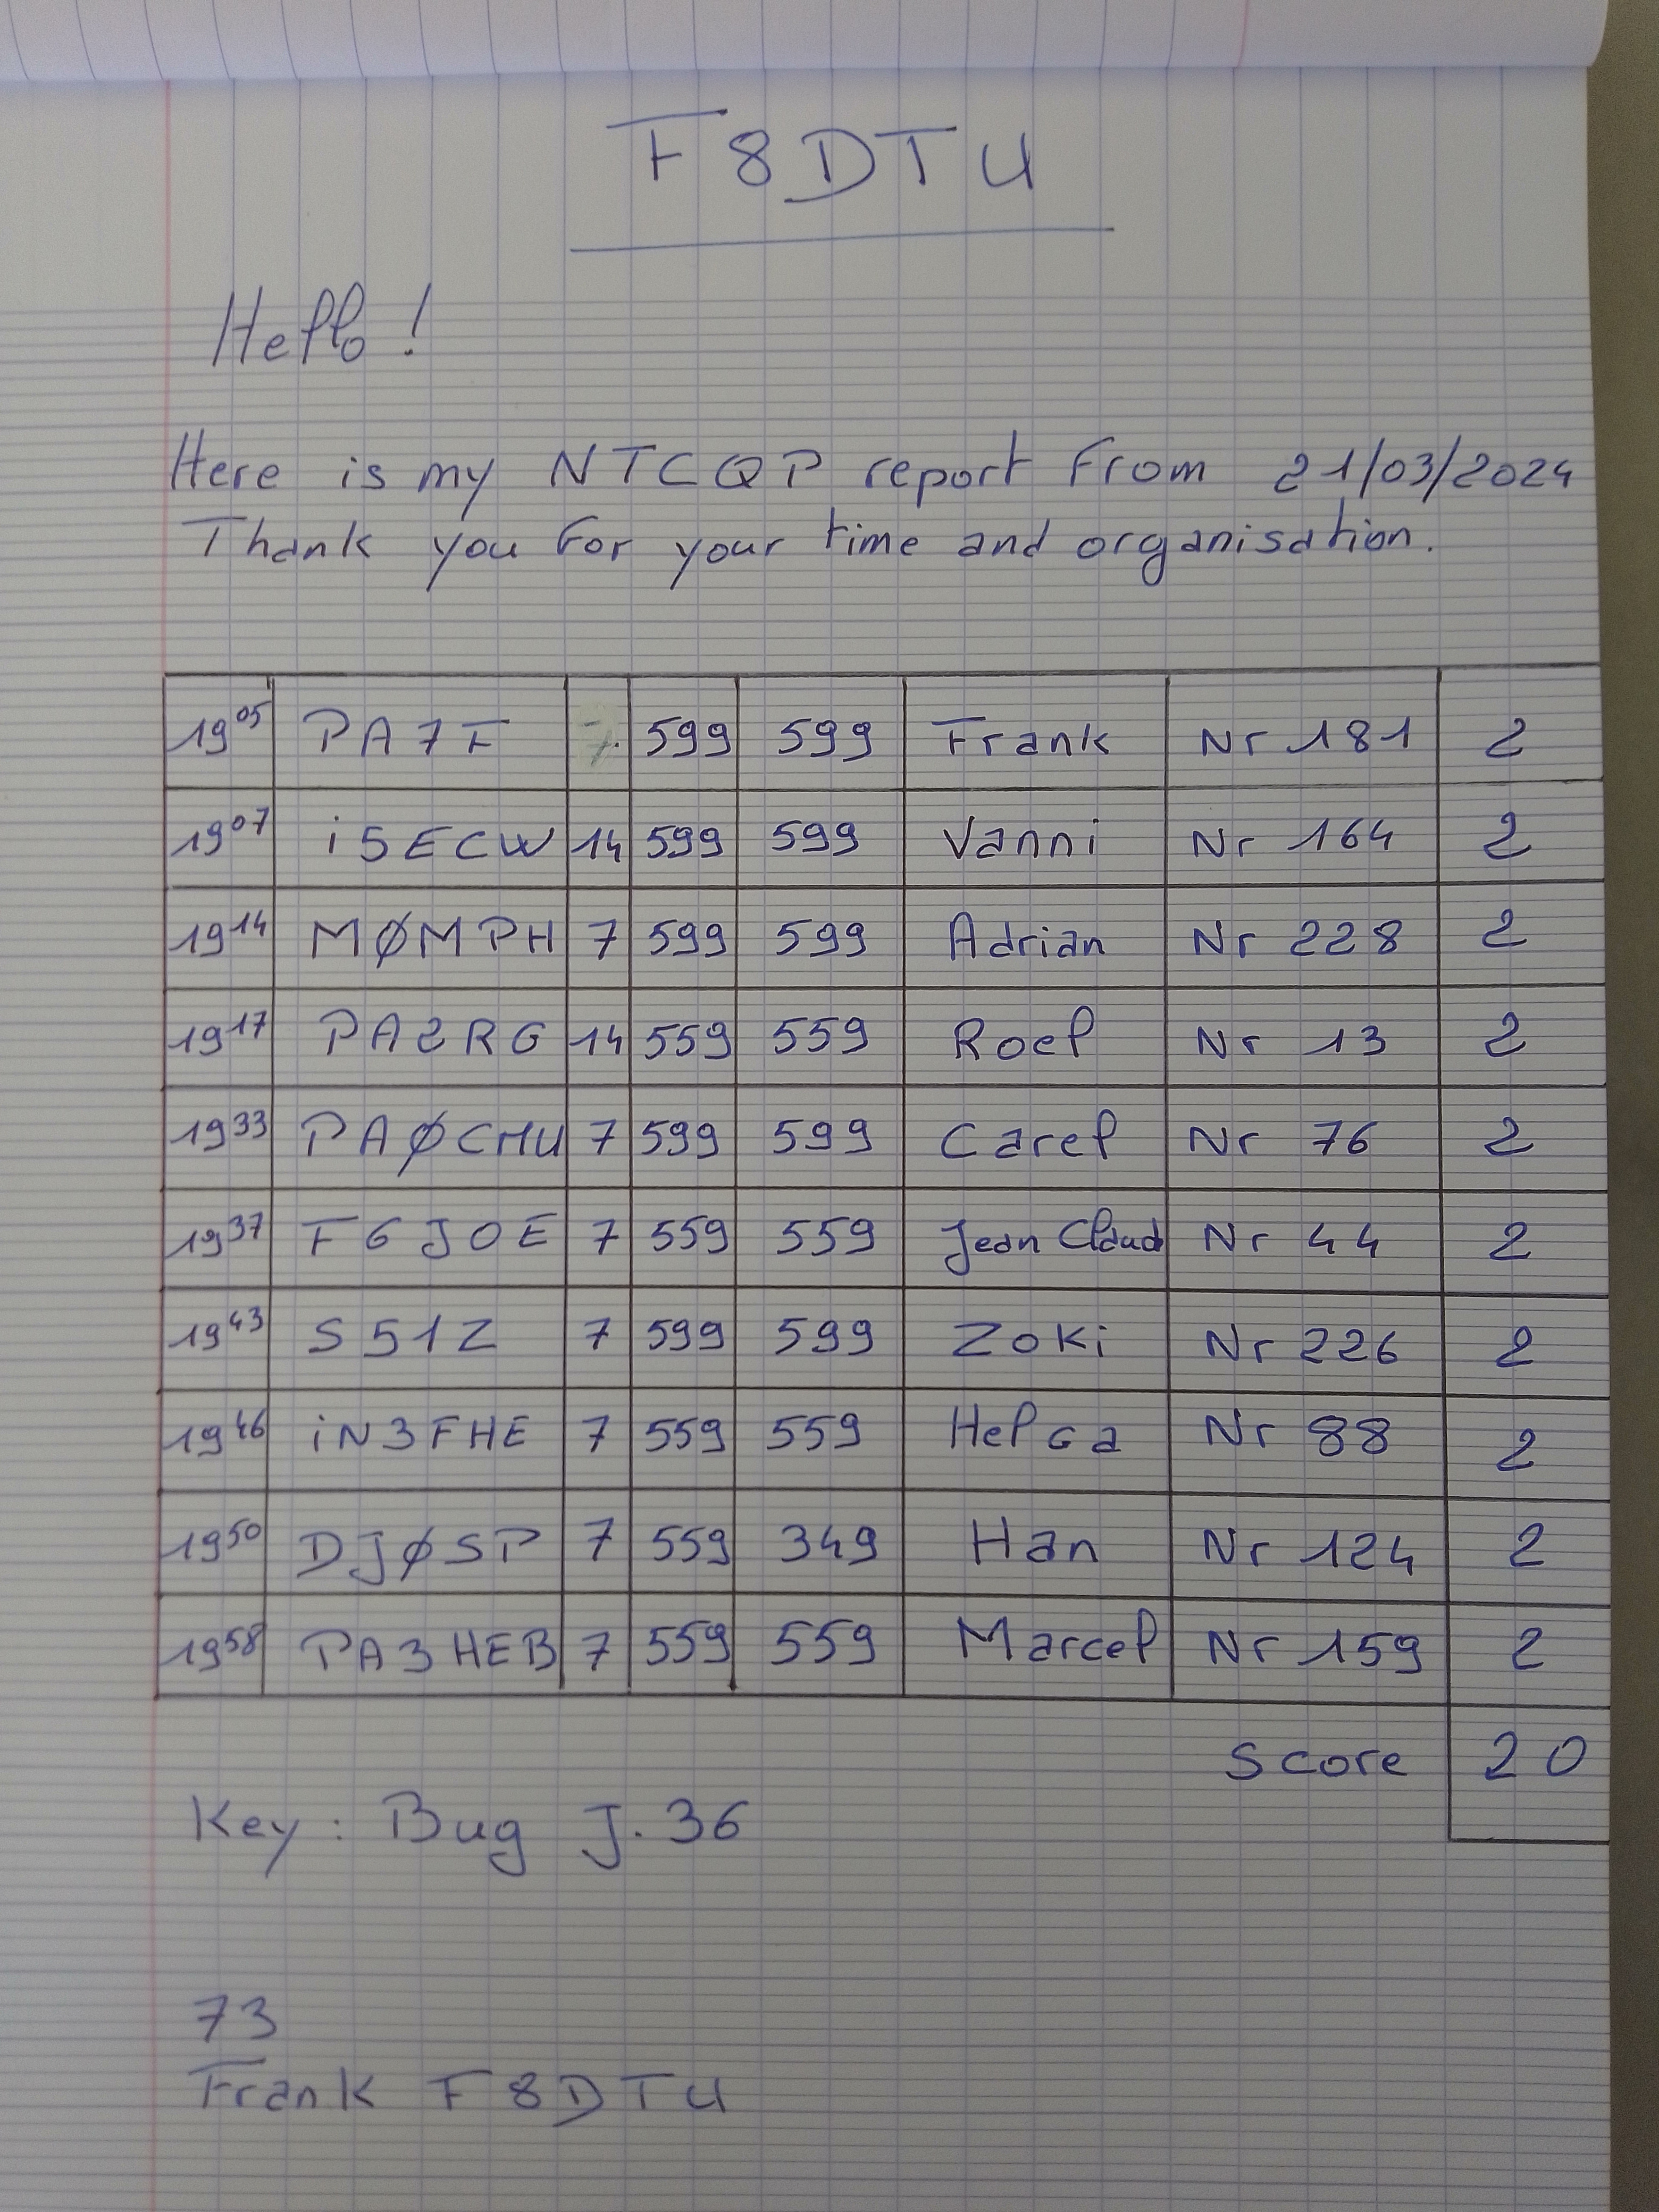 F8DTU
Hello!
Here is my NTCQP report from 21/03/2024
Thank you for your time and organisation.
19 05 PA7F 7 599 599 Frank Nr 181 2
19 07 i5ECW 14 599 599 Vanni Nr 164 2
19 14 MØMPH 7 599 599 Adrian Nr 228 2
19 17 PA2RG 14 559 559 Roel Nr 13 2
19 33 PAØCMU 7 599 599 Carel Nr 76 2
19 37 F6JOE 7 559 559 Jean Claud Nr 44 2
19 43 S51Z 7 599 599 Zoki Nr 226 2
19 46 iN3FHE 7 559 559 Helga Nr 88 2
19 50 DJØSP 7 559 349 Han Nr 124 2
19 58 PA3HEB 7 559 559 Marcel Nr 159 2
Score 20
Key: Bug J.36
73
Frank F8DTU